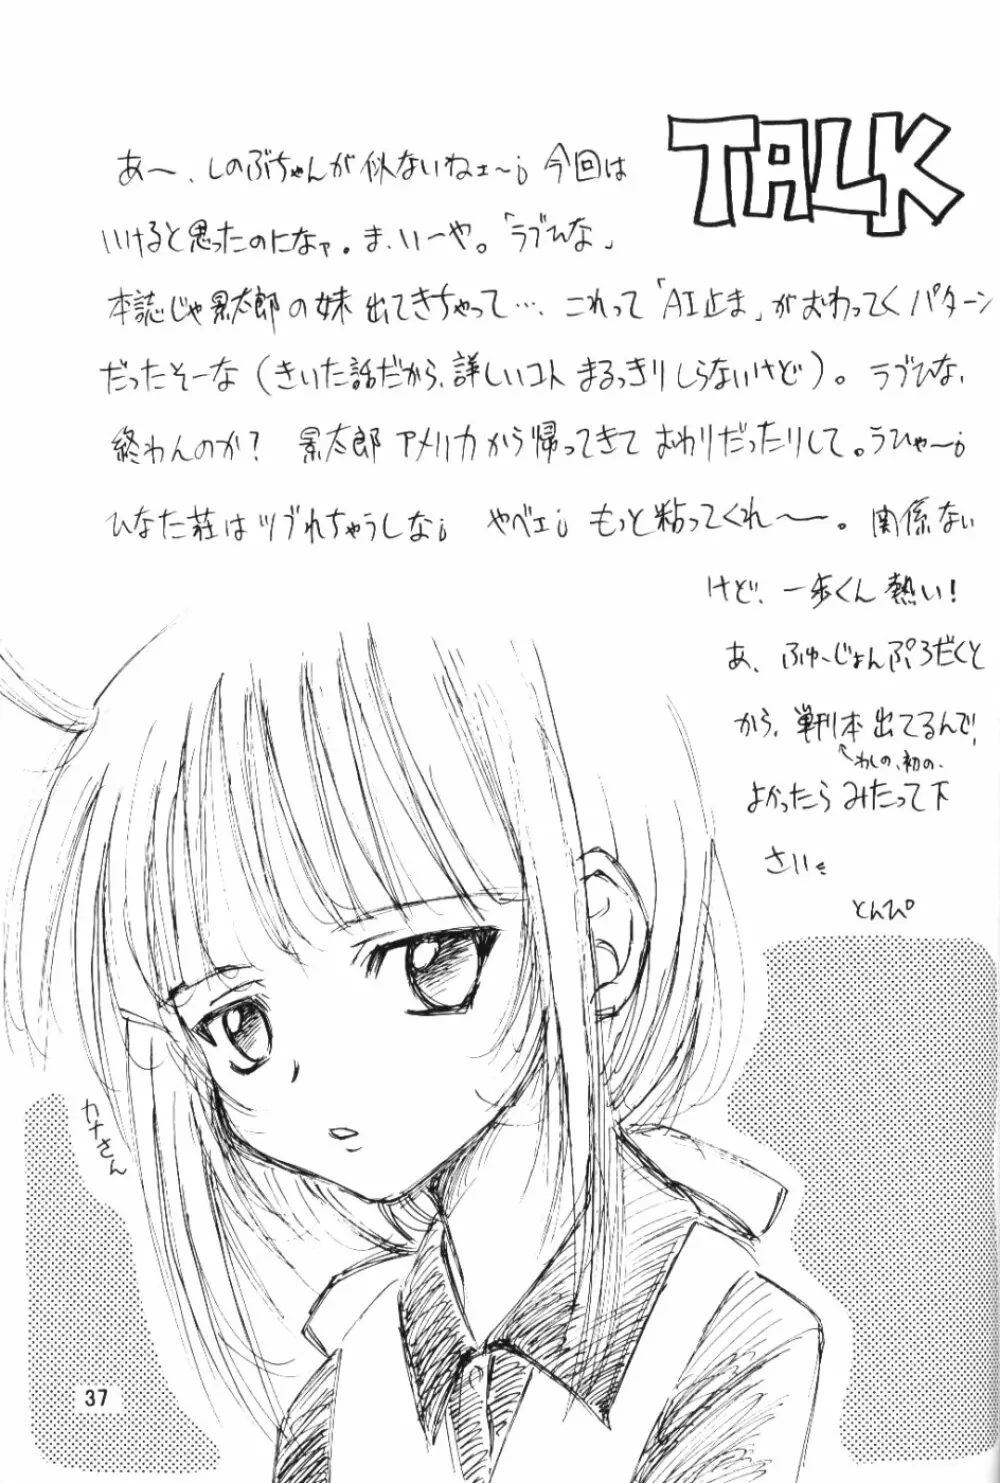 TALK
あ～、しのぶちゃんが似ないねェ～。今回は
いけると思ったのになァ。ま、いーや。「ラブひな」
本誌じゃ景太郎の妹出てきちゃって…。これって「AI止ま」がおわってくパターン
だったそーな(きいた話だから、詳しいコトまるっきりしらないけど)。ラブひな、
終わんのか? 景太郎アメリカから帰ってきておわりだったりして。うひゃ～。
ひなた荘はツブれちゃうしな。やべェ。もっと粘ってくれ～。関係ない
けど、一歩くん熱い!
あ、ふゅーじょんぷろだくと
から、単行本出てるんで、
↑わしの、初の、
よかったらみたって下
さい
とんぴ
カナさん
37